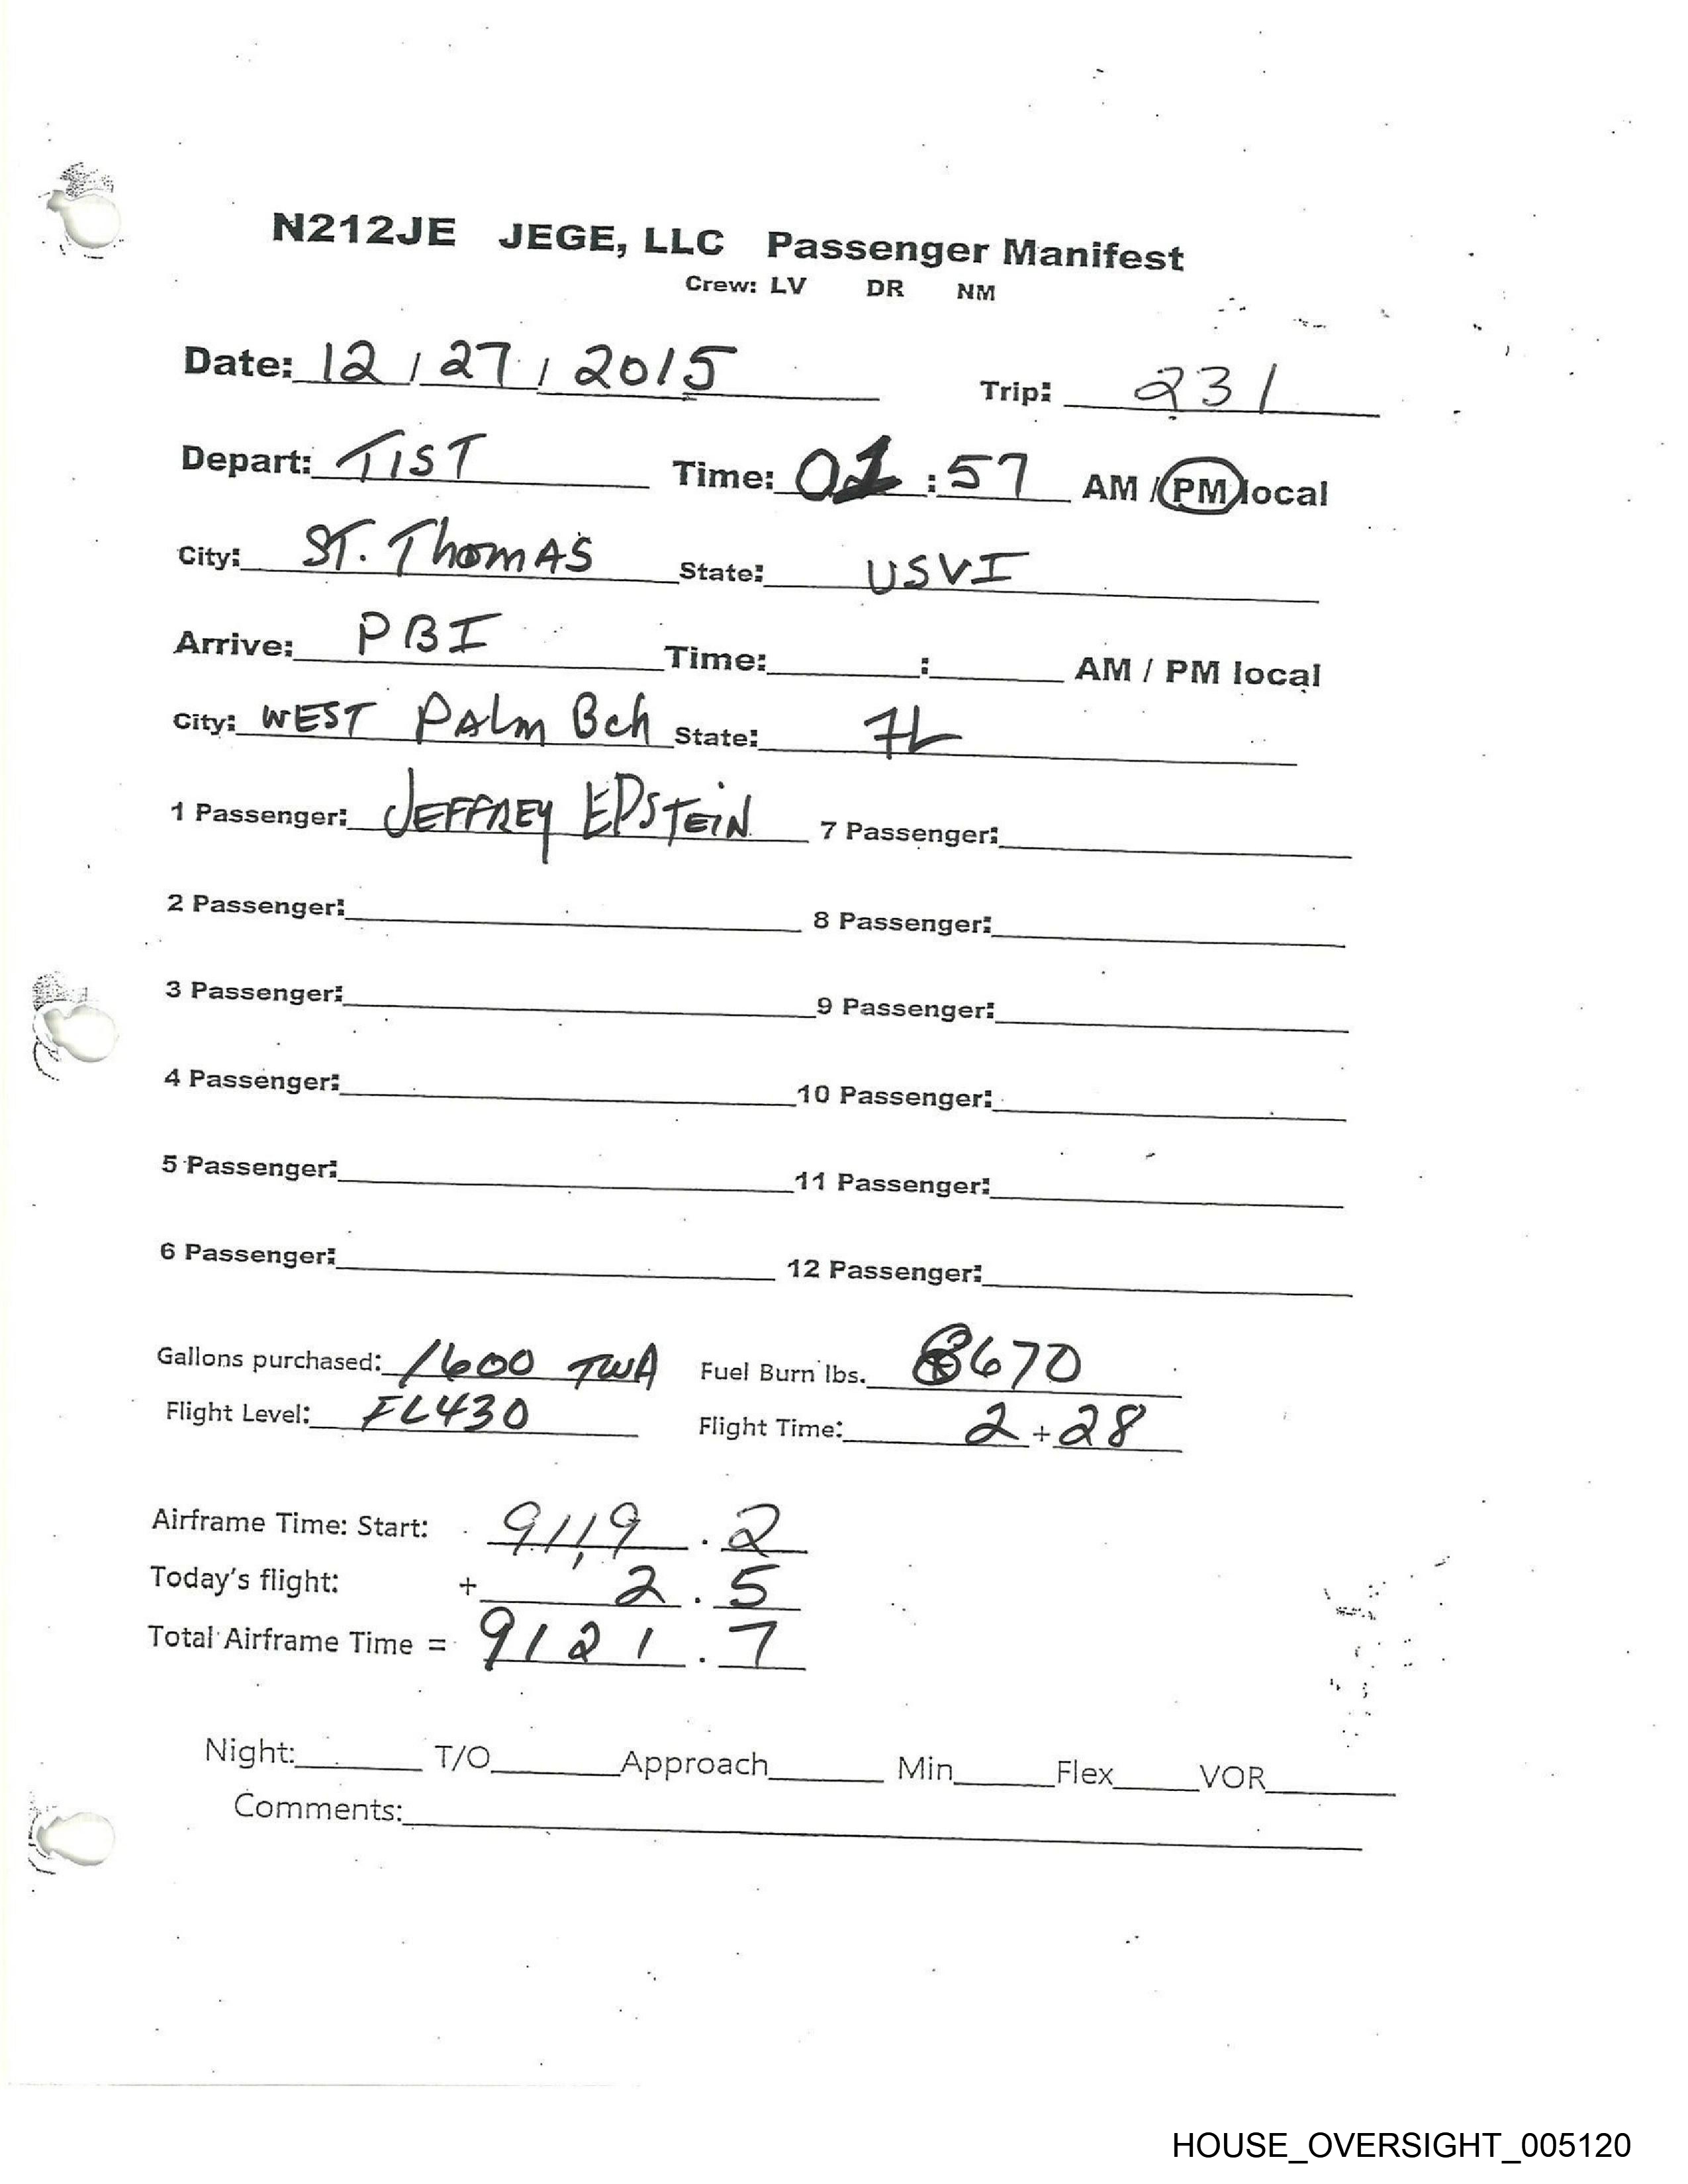 N212JE JEGE, LLC Passenger Manifest
Crew: LV DR NM
Date: 12 / 27 / 2015 Trip: 231
Depart: TIST Time: 02:57 AM / PM local
City: ST. THOMAS State: USVI
Arrive: PBI Time: : AM / PM local
City: WEST PALM Bch State: FL
1 Passenger: JEFFREY EPSTEIN 7 Passenger:
2 Passenger: 8 Passenger:
3 Passenger: 9 Passenger:
4 Passenger: 10 Passenger:
5 Passenger: 11 Passenger:
6 Passenger: 12 Passenger:
Gallons purchased: 1600 TWA Fuel Burn lbs. 8670
Flight Level: FL430 Flight Time: 2 + 28
Airframe Time: Start: 9119 . 2
Today's flight: + 2 . 5
Total Airframe Time = 9121 . 7
Night: T/O Approach Min Flex VOR
Comments:
HOUSE_OVERSIGHT_005120